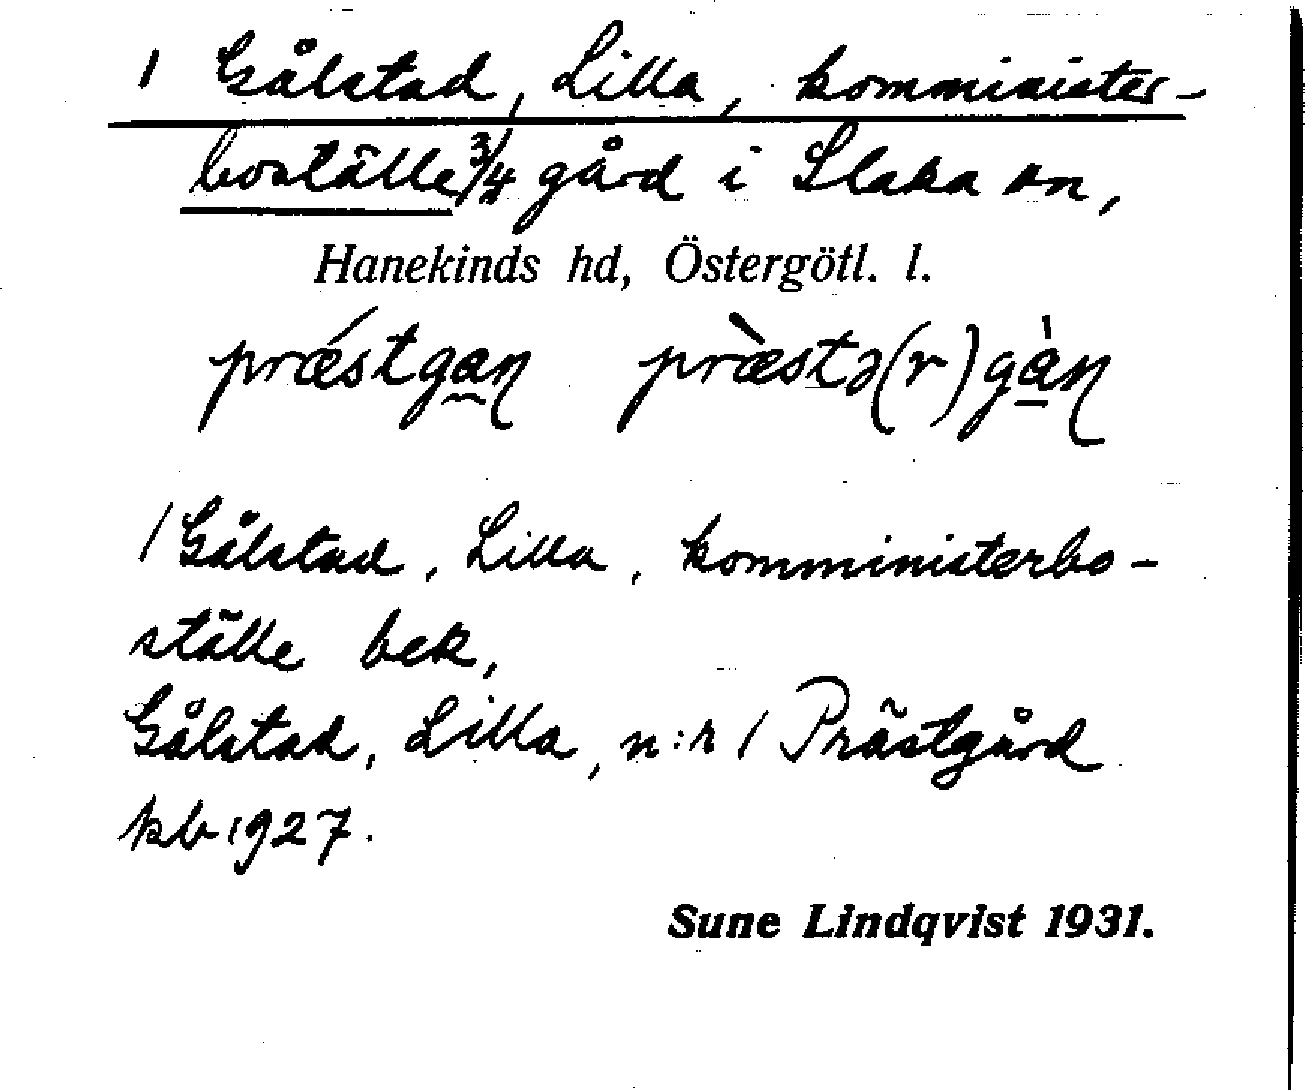 1 Gålstad, Lilla, komminister-
boställe 3/4 gård i Slaka sn,
Hanekinds hd, Östergötl. l.
prǽstgan præ̀stə(r)gàn
1 Gålstad, Lilla, komministerbo-
ställe bek,
Gålstad, Lilla, n:r 1 Prästgård
kb 1927.
Sune Lindqvist 1931.